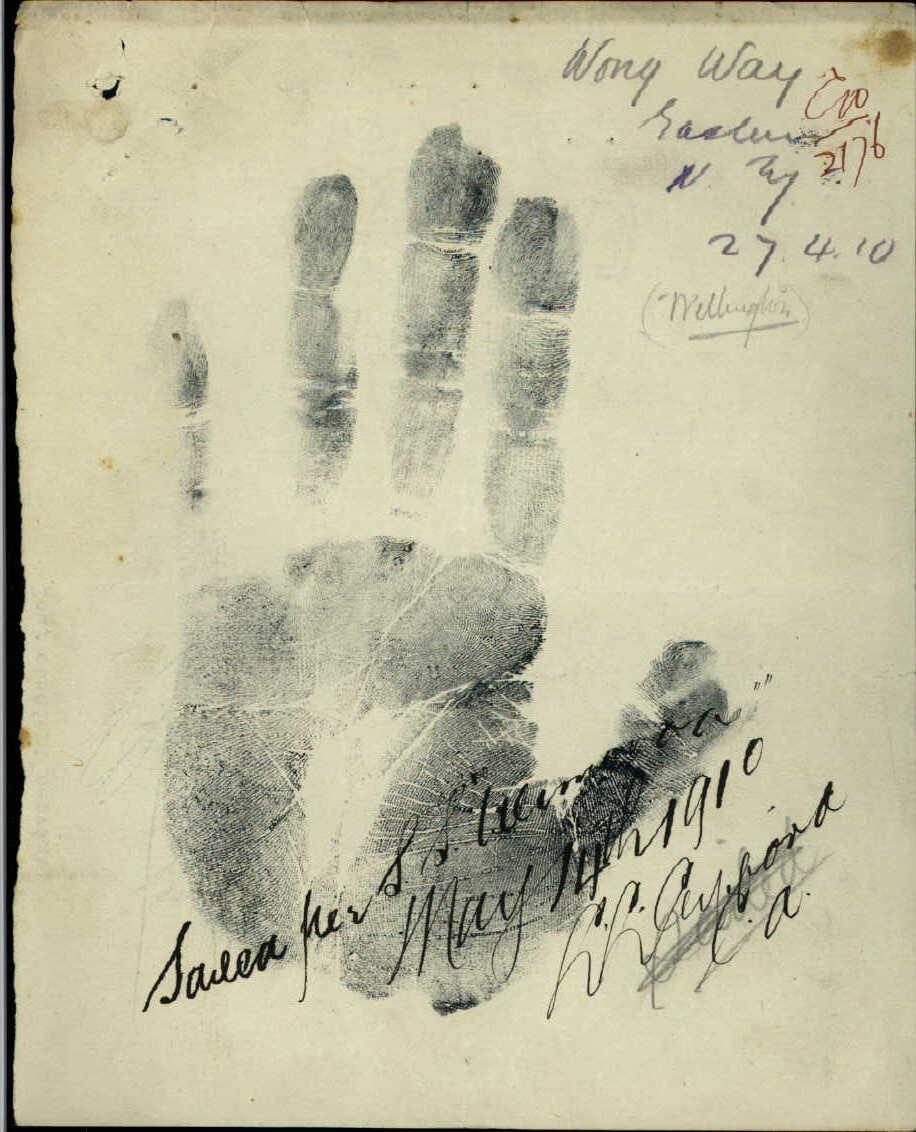 Wong Way
Eastern
2176
N.
27.4.10
(Wellington)
Sailed per S.S.
May 14th 1910
C. A.